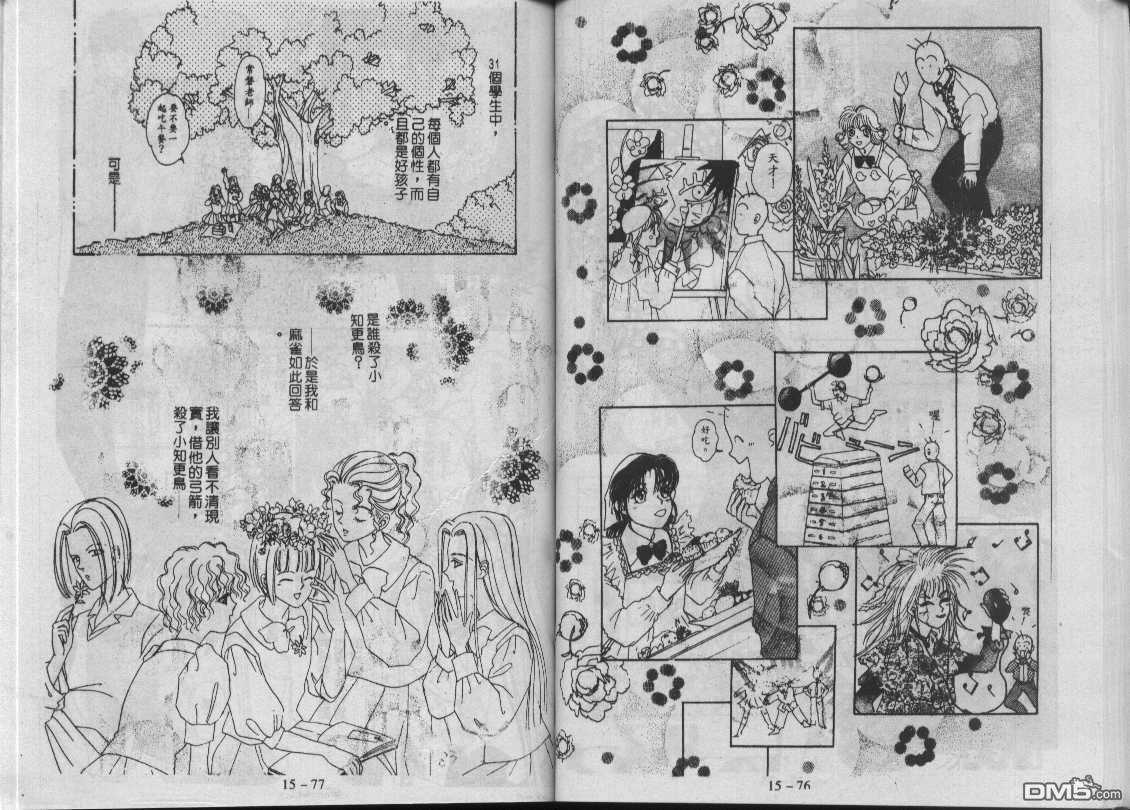 天才！
喔
好吃。
哭
15-76
31個學生中，
每個人都有自
己的個性，而
且都是好孩子
常磐老師─
要不要一
起吃午餐？
可是────
是誰殺了小
知更鳥？
──於是我和
麻雀如此回答
。
我讓別人看不清現
實，借他的弓箭，
殺了小知更鳥──
15-77
DM5.com